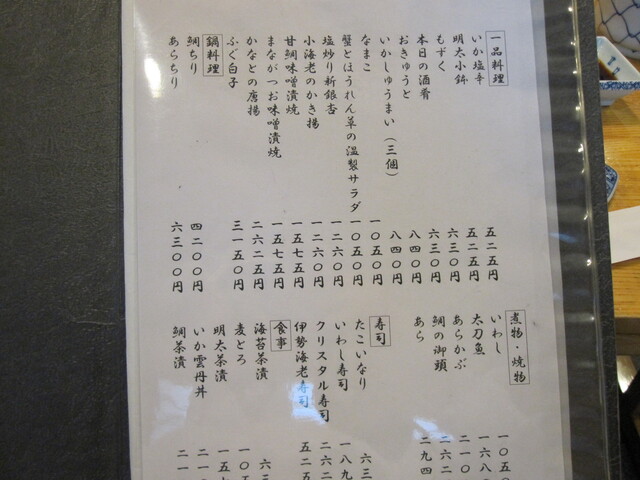 一品料理
いか塩辛 五二五円
明太小鉢 五二五円
もずく 六三〇円
本日の酒肴 六三〇円
おきゅうど 八四〇円
いかしゅうまい（三個） 八四〇円
なまこ 一〇五〇円
蟹とほうれん草の温製サラダ 一〇五〇円
塩炒り新銀杏 一二六〇円
小海老のかき揚 一二六〇円
甘鯛味噌漬焼 一五七五円
まながつお味噌漬焼 一五七五円
かなとの唐揚 二六二五円
ふぐ白子 三一五〇円
鍋料理
鯛ちり 四二〇〇円
あらちり 六三〇〇円
煮物・焼物
いわし 一〇五
太刀魚 一六八
あらかぶ 二一〇
鯛の御頭 二六二
あら 二九四
寿司
たこいなり 六三
いわし寿司 一八九
クリスタル寿司 二六二
伊勢海老寿司 五二五
食事
海苔茶漬 六三
麦とろ 一〇五
明太茶漬 一五七
いか雲丹丼 二一〇
鯛茶漬 二一